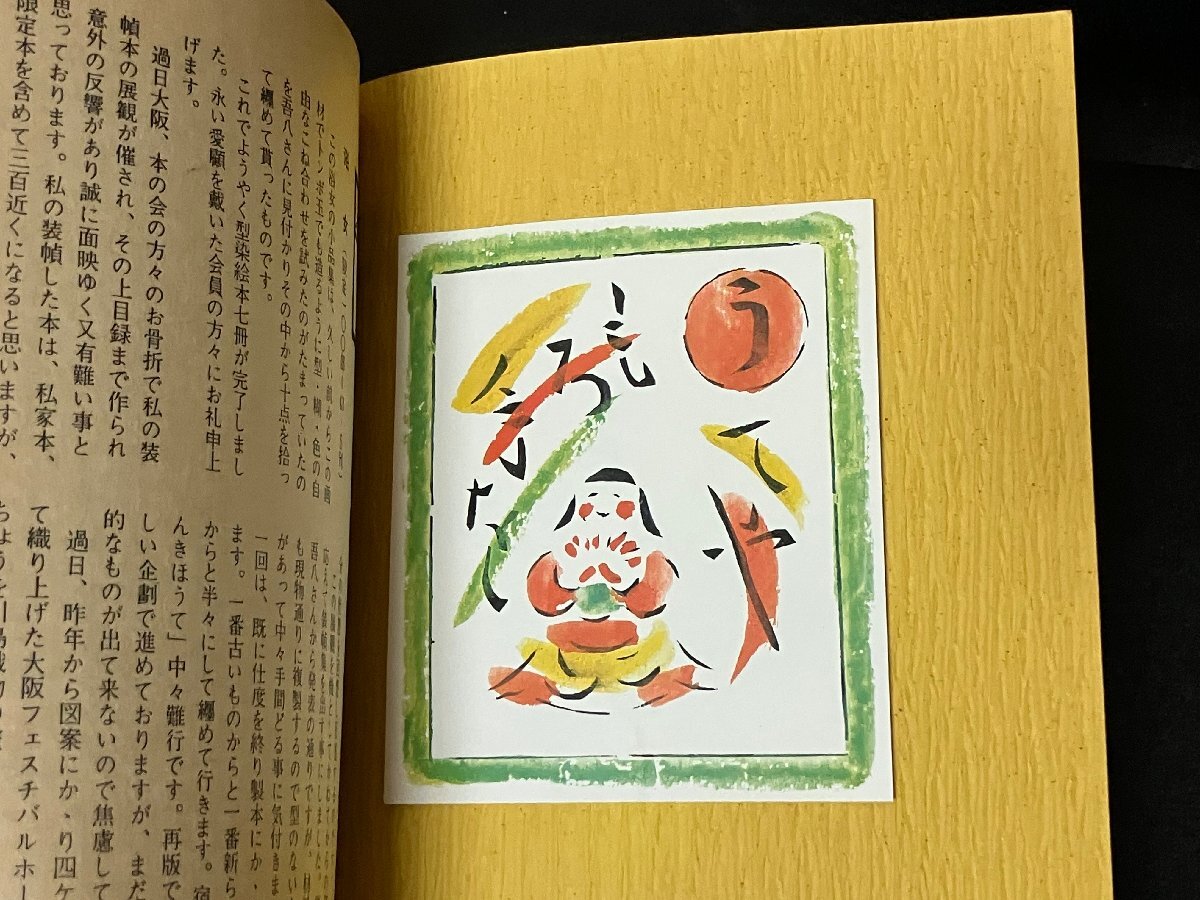 浴女
この浴女の小品集は、久しい前からこの画
材でトンボ玉でも造るように型・糊・色の自
由なこね合わせを試みたのがたまっていたの
を吾八さんに見付かりその中から十点を拾っ
て纒めて貰ったものです。
これでようやく型染絵本七冊が完了しまし
た。永い愛顧を戴いた会員の方々にお礼申上
げます。
過日大阪、本の会の方々のお骨折で私の装
幀本の展観が催され、その上目録まで作られ
意外の反響があり誠に面映ゆく又有難い事と
思っております。私の装幀した本は、私家本、
限定本を含めて三百近くになると思いますが、
応えて装幀集を出す事にしました。
吾八さんから発表の通りですが、材
も現物通りに複製するので型のない
があって中々手間どる事に気付きま
一回は、既に仕度を終り製本にかゝ
ます。一番古いものからと一番新ら
からと半々にして纒めて行きます。宿
んきほうて」中々難行です。再版で
しい企劃で進めておりますが、まだ
的なものが出て来ないので焦慮して
過日、昨年から図案にかゝり四ケ
て織り上げた大阪フェスチバルホー
うてや